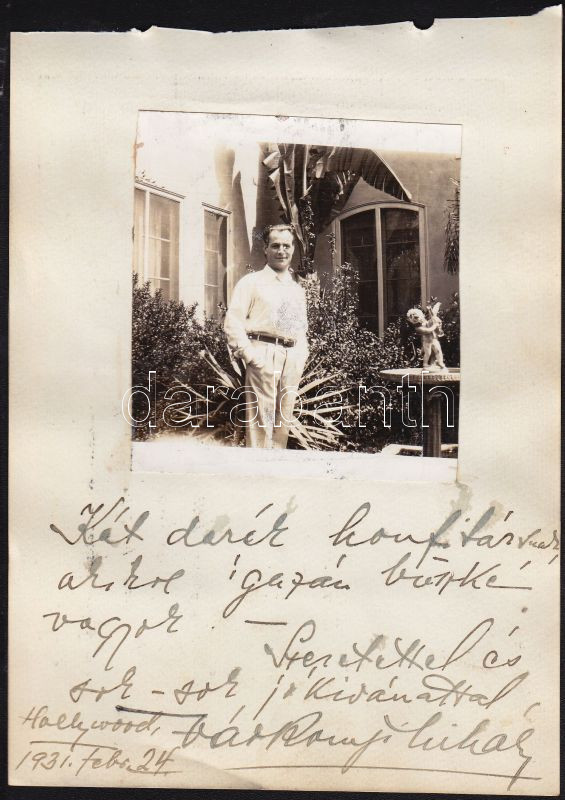 darabanth
Két derék honfitársnak,
akikre igazán büszke
vagyok. —
Szeretettel és
sok-sok jókívánattal,
Hollywood, Várkonyi Mihály
1931. Febr. 24.